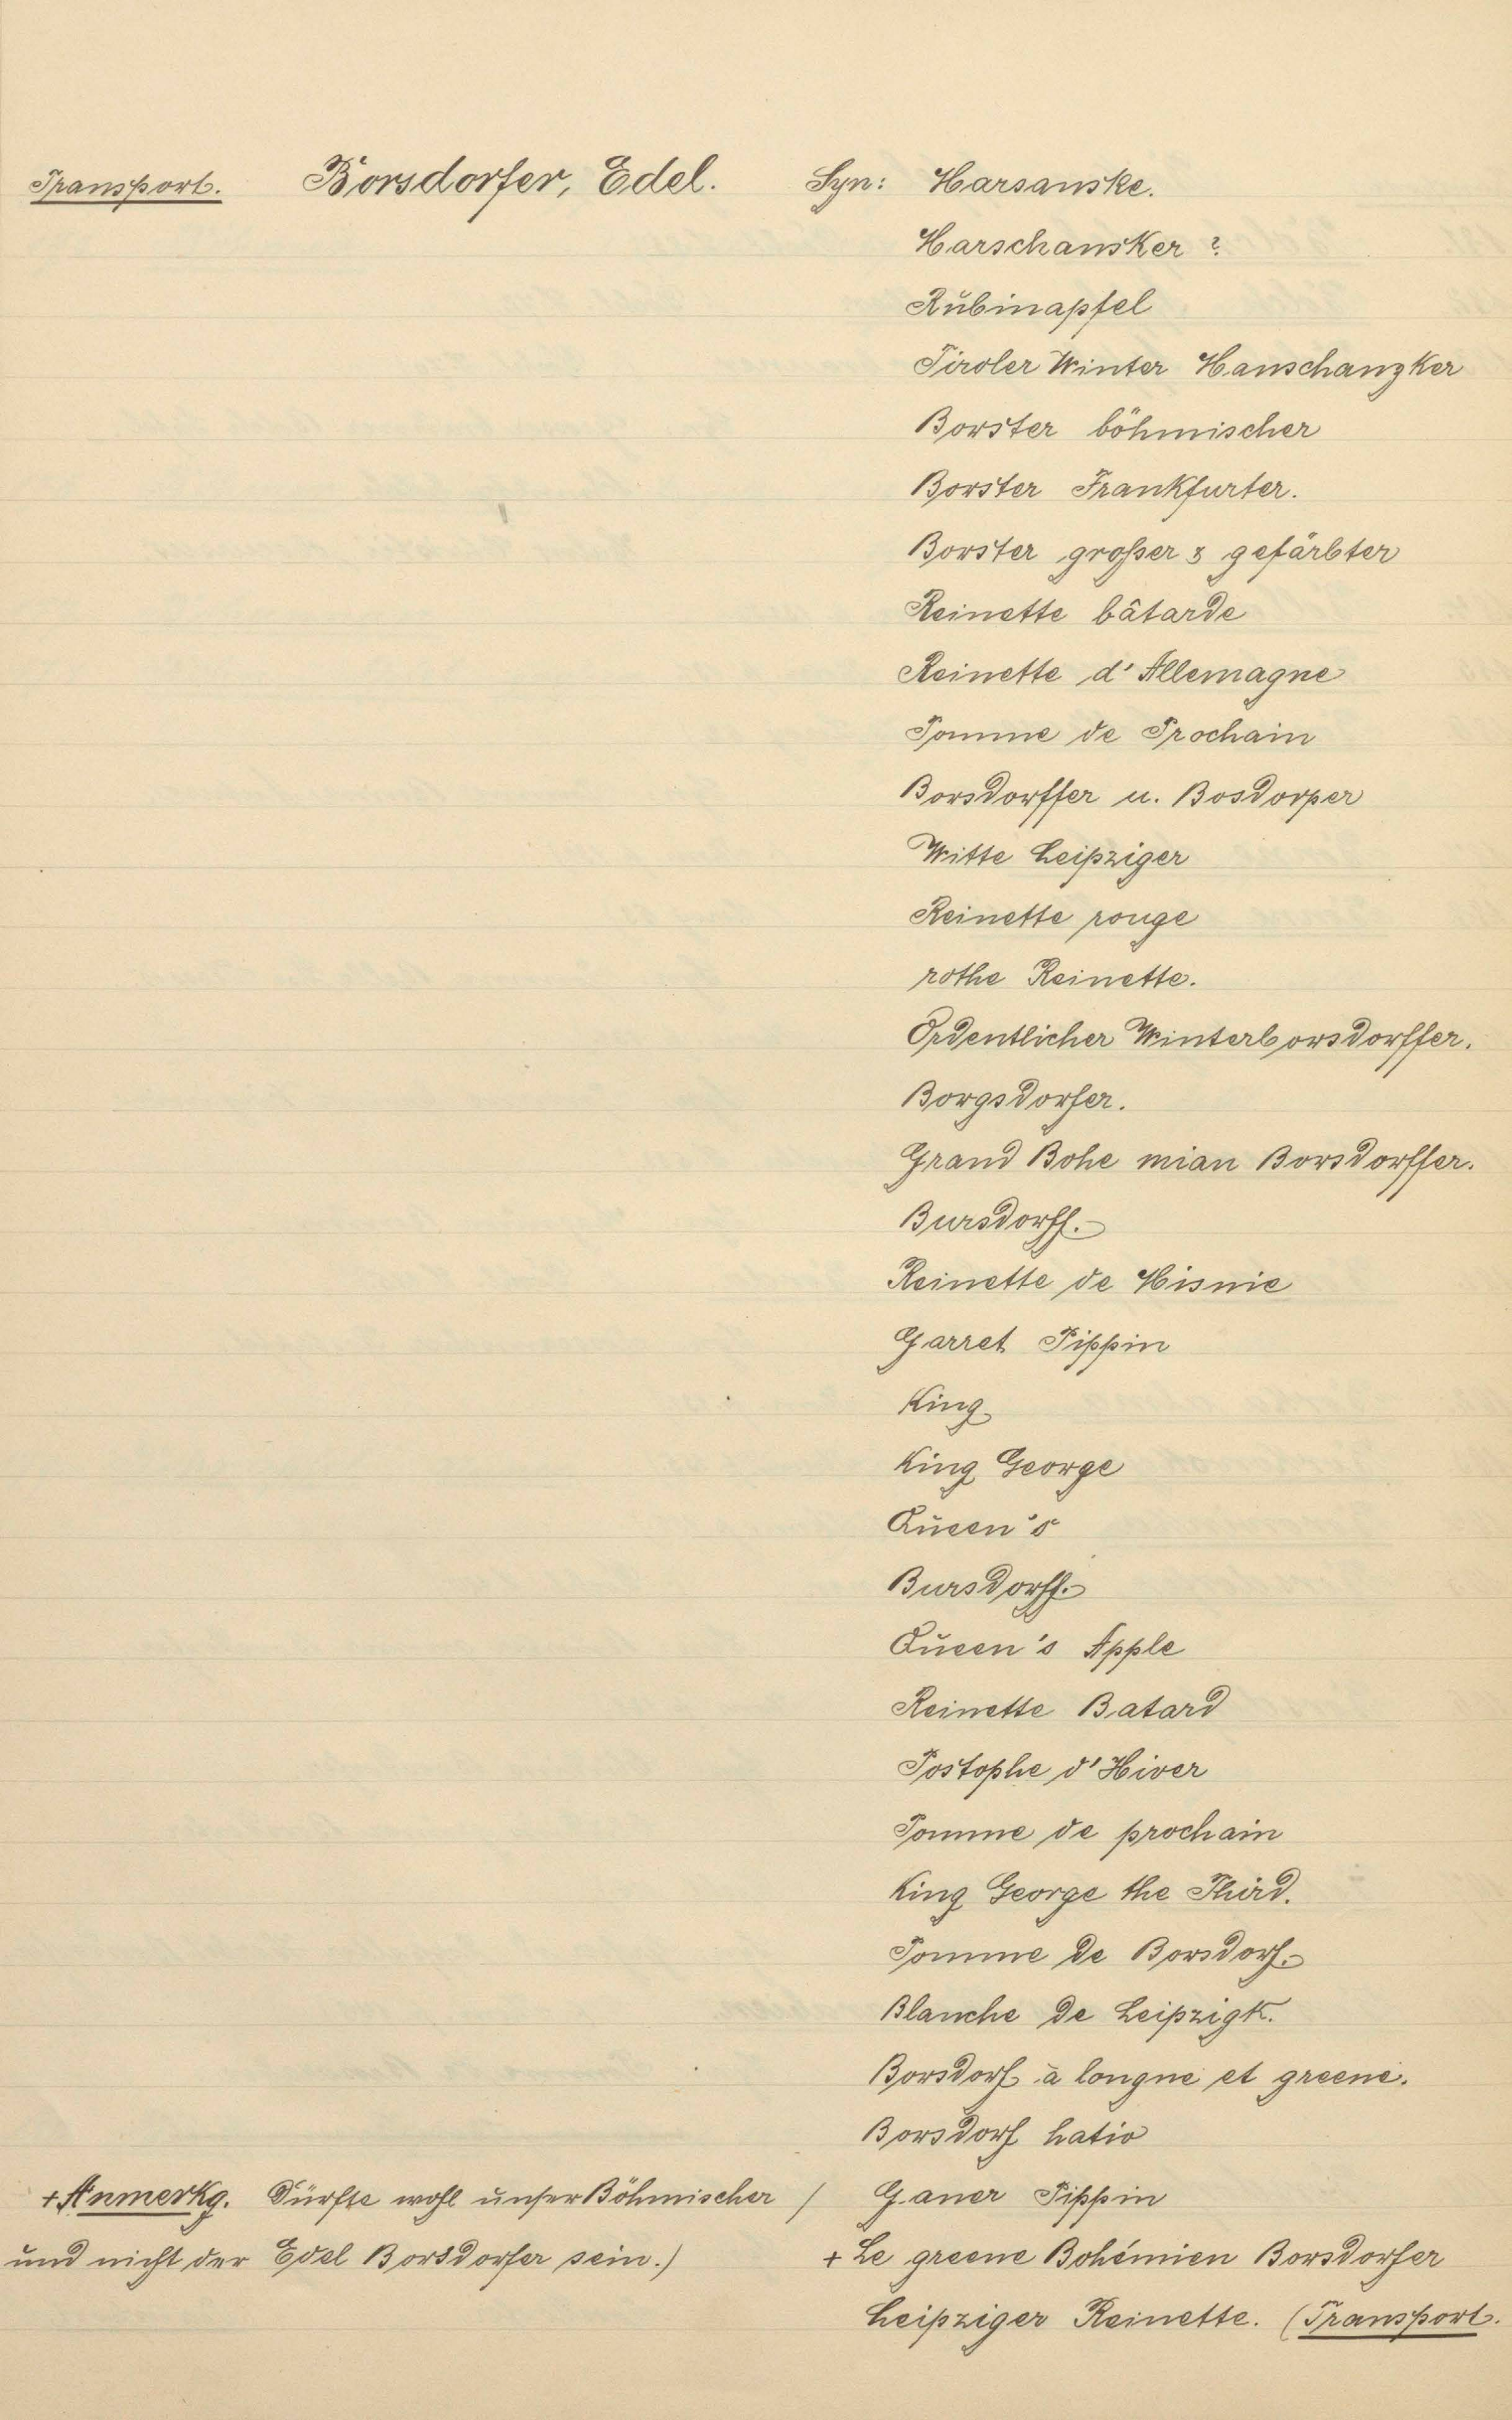 Transport. Borsdorfer, Edel. Syn: Harsanske.
Harschansker ?
Rubinapfel
Tiroler Winter Hanschanzker
Borster böhmischer
Borster Frankfurter.
Borster großer & gefärbter
Reinette bâtarde
Reinette d' Allemagne
Pomme de Prochain
Borsdorffer u. Bosdorper
Witte Leipziger
Reinette rouge
rothe Reinette.
Ordentlicher Winterborsdorffer.
Borgsdorfer.
Grand Bohe mian Borsdorffer.
Bursdorff.
Reinette de Hisnie
Garret Pippin
King
King George
Queen's
Bursdorff.
Queen's Apple
Reinette Batard
Postophe d'Hiver
Pomme de prochain
King George the Third.
Pomme de Borsdorf.
Blanche de Leipzigk.
Borsdorf à longne et greene.
Borsdorf hatio
+Anmerkg. Dürfte wohl unser Böhmischer / Ganer Pippin
und nicht der Edel Borsdorfer sein.) + Le greene Bohémien Borsdorfer
Leipziger Reinette. (Transport.